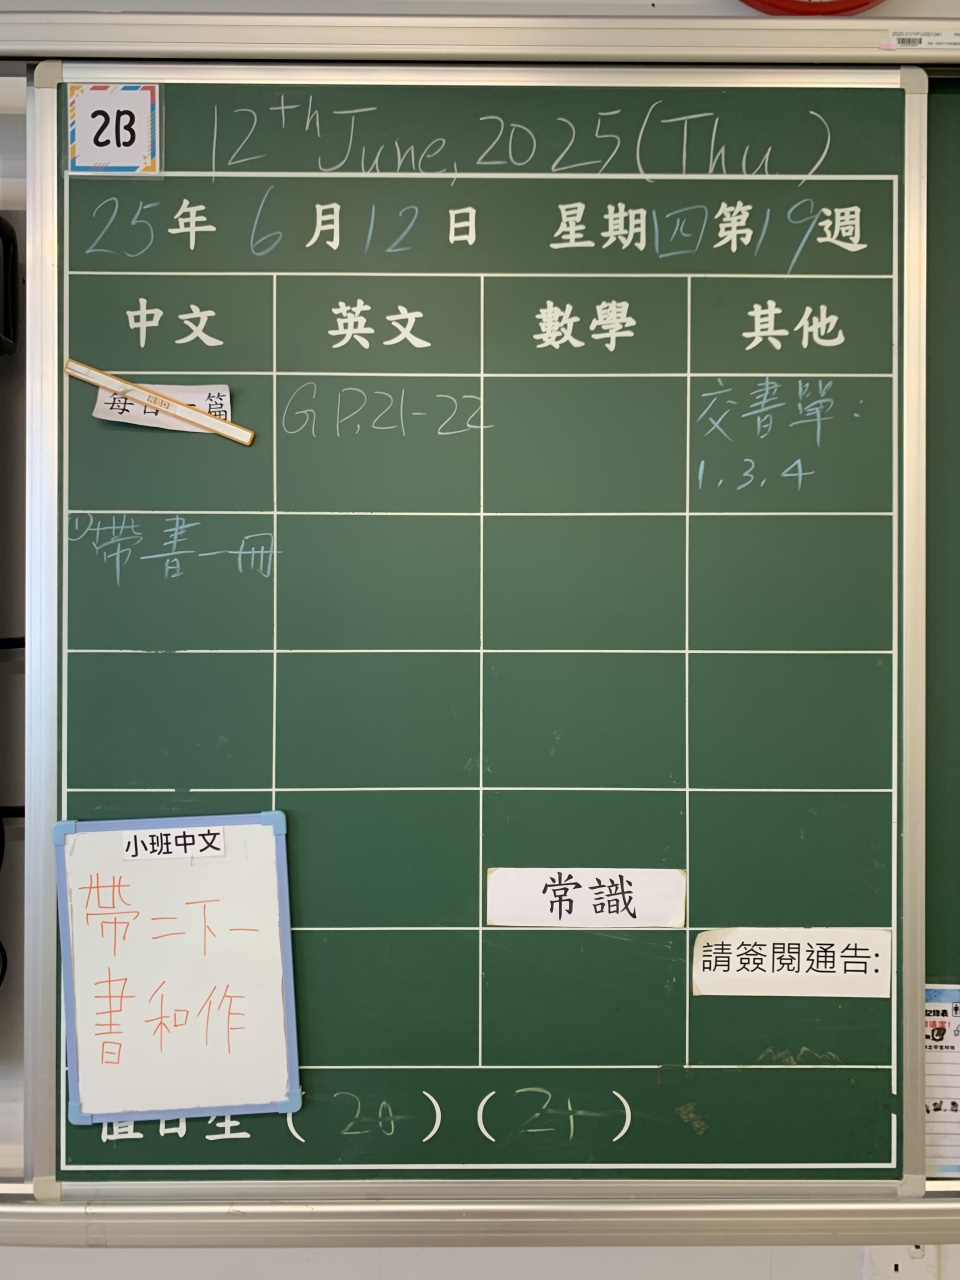 2B
12th June, 2025 (Thu)
25年 6月12日 星期四第19週
中文 英文 數學 其他
每日一篇
GP.21-22
交書單:
1.3.4
①帶書一冊
小班中文
帶二下一
書和作
常識
請簽閱通告:
值日生 (20) (21)